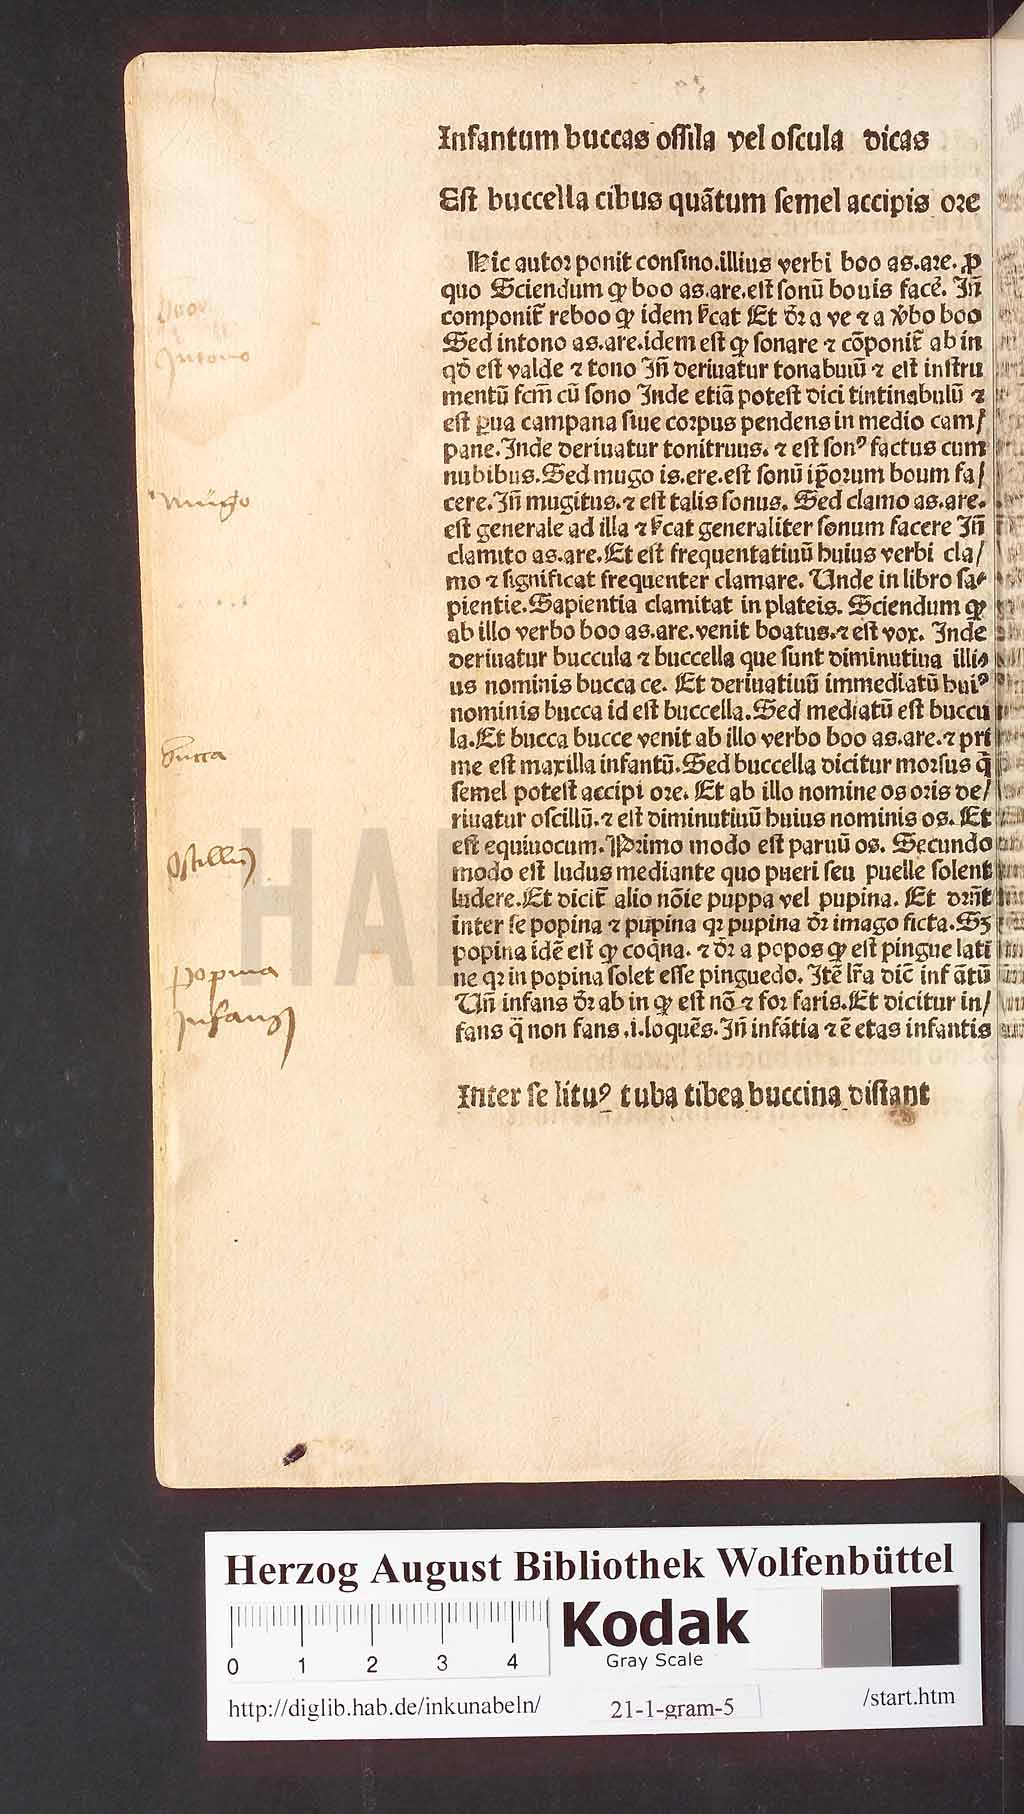 Infantum buccas ossila vel oscula dicas
Est buccella cibus quātum semel accipis ore
Hic autor ponit consino.illius verbi boo as.are.ꝓ
quo Sciendum ꝙ boo as.are.est sonū bouis face᷒. Jn̄
componit᷑ reboo ꝙ idem s̄cat Et dr̄ a ve ⁊ a v̄bo boo
Sed intono as.are.idem est ꝙ sonare ⁊ cōponit᷑ ab in
qd̄ est valde ⁊ tono Jn̄ deriuatur tonabulū ⁊ est instru
mentū fcm̄ cū sono Jnde etiā potest dici tintinabulū ⁊
est ꝑua campana siue corpus pendens in medio cam/
pane.Jnde deriuatur tonitruus. ⁊ est sonꝰ factus cum
nubibus.Sed mugo is.ere.est sonū ip̄orum boum fa/
cere.Jn̄ mugitus.⁊ est talis sonus. Sed clamo as.are.
est generale ad illa ⁊ s̄cat generaliter sonum facere Jn̄
clamito as.are.Et est frequentatiuū huius verbi cla/
mo ⁊ significat frequenter clamare. Unde in libro sa/
pientie.Sapientia clamitat in plateis. Sciendum ꝙ
ab illo verbo boo as.are.venit boatus.⁊ est vox. Jnde
deriuatur buccula ⁊ buccella que sunt diminutiua illi/
us nominis bucca ce. Et deriuatiuū immediatū huiꝰ
nominis bucca id est buccella.Sed mediatū est buccu
la.Et bucca bucce venit ab illo verbo boo as.are.⁊ pri
me est maxilla infantū.Sed buccella dicitur morsus q̄
semel potest accipi ore. Et ab illo nomine os oris de/
riuatur oscillū.⁊ est diminutiuū huius nominis os. Et
est equiuocum.Primo modo est paruū os. Secundo
modo est ludus mediante quo pueri seu puelle solent
ludere.Et dicit᷑ alio nōie puppa vel pupina. Et drn̄t
inter se popina ⁊ pupina qꝛ pupina dr̄ imago ficta.Sꝫ
popina idē est ꝙ coq̄na. ⁊ dr̄ a popos ꝙ est pingue lati
ne qꝛ in popina solet esse pinguedo. Jtē lr̄a dic̄ infātū
Un̄ infans dr̄ ab in ꝙ est nō ⁊ for faris.Et dicitur in/
fans q̄ non fans .i.loquēs.Jn̄ infātia ⁊ ē etas infantis
Inter se lituꝰ tuba tibea buccina distant
Intono
mugo
bucca
Oscillū
popina
Infans
HAB
Herzog August Bibliothek Wolfenbüttel
0 1 2 3 4
Kodak
Gray Scale
http://diglib.hab.de/inkunabeln/
21-1-gram-5
/start.htm